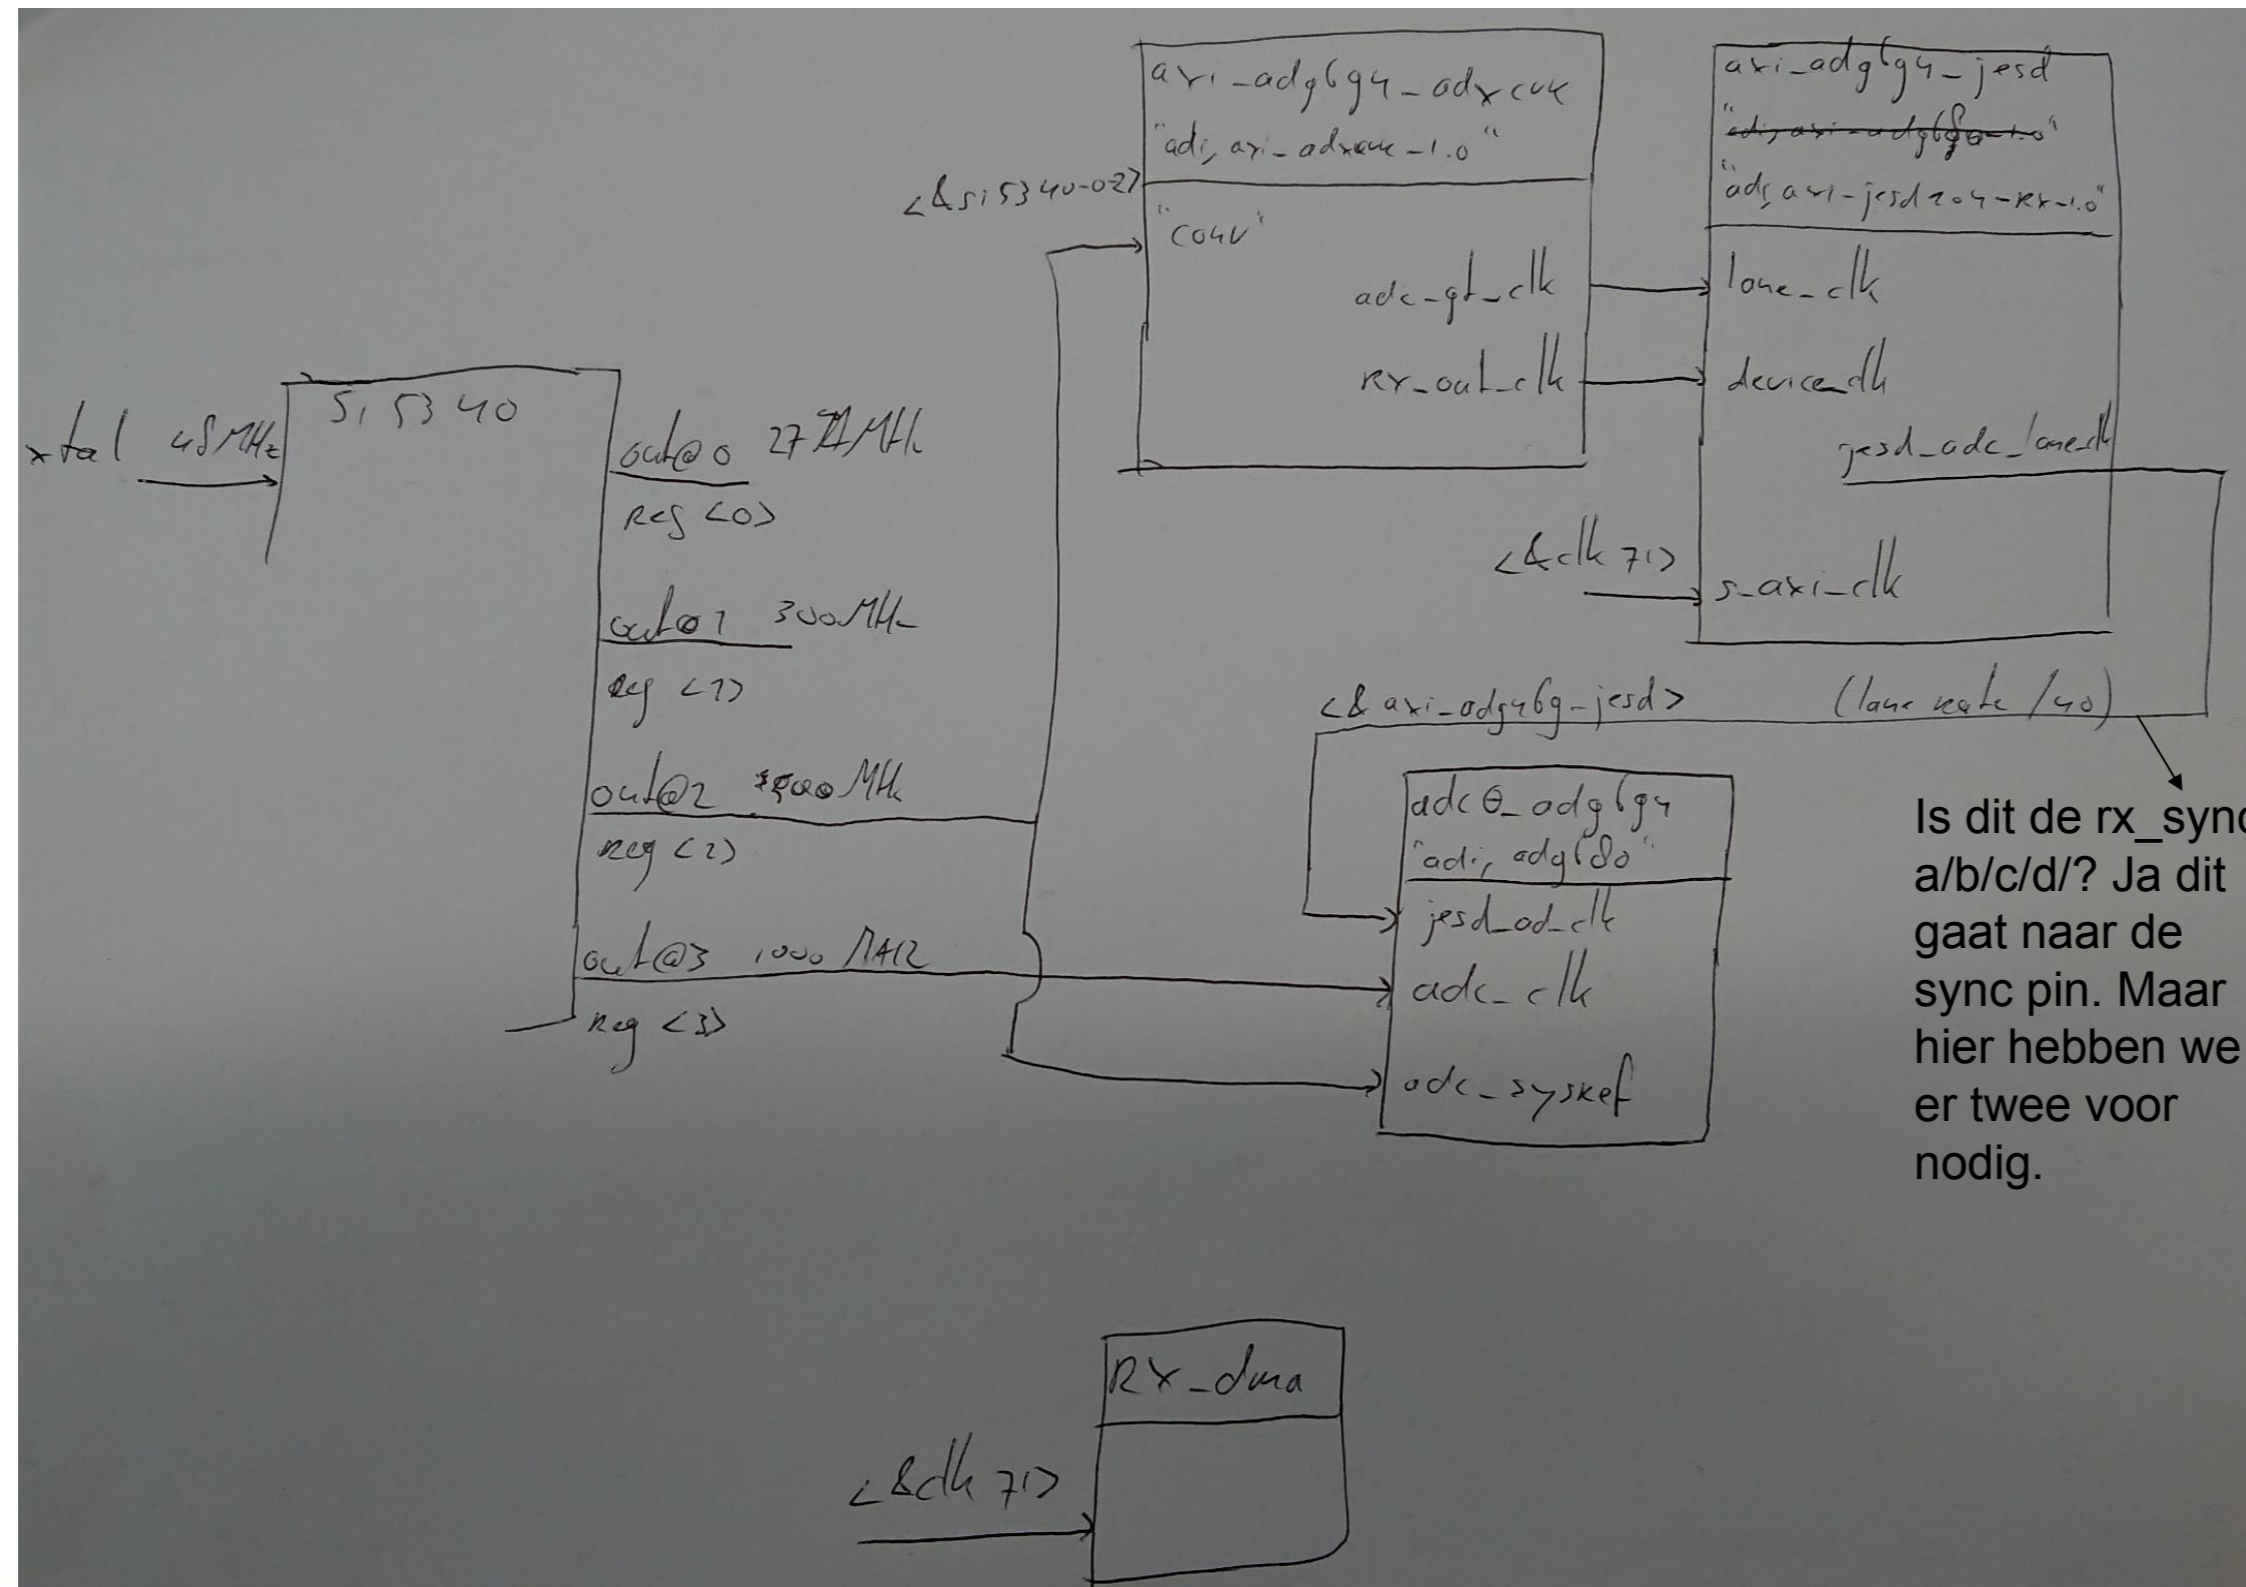 xtal 48 MHz
Si 5340
out@0
Reg <0>
out@1 300 MHz
Reg <1>
out@2 MHz
Reg <2>
out@3 1000
Reg <3>
<&si5340-0-2>
"adi,
"conv"
adc_gt_clk
rx_out_clk
axi_ad9694_jesd
"adi, axi-jesd204-rx-1.0"
lane_clk
device_clk
jesd_adc_lane_clk
<&clk 71>
s_axi_clk
<&axi_ad9469-jesd> (lane rate /40)
adc0_ad9694
"adi, ad9680"
jesd_ad_clk
adc_clk
adc_sysref
Is dit de rx_sync
a/b/c/d/? Ja dit
gaat naar de
sync pin. Maar
hier hebben we
er twee voor
nodig.
Rx_dma
<&clk 71>